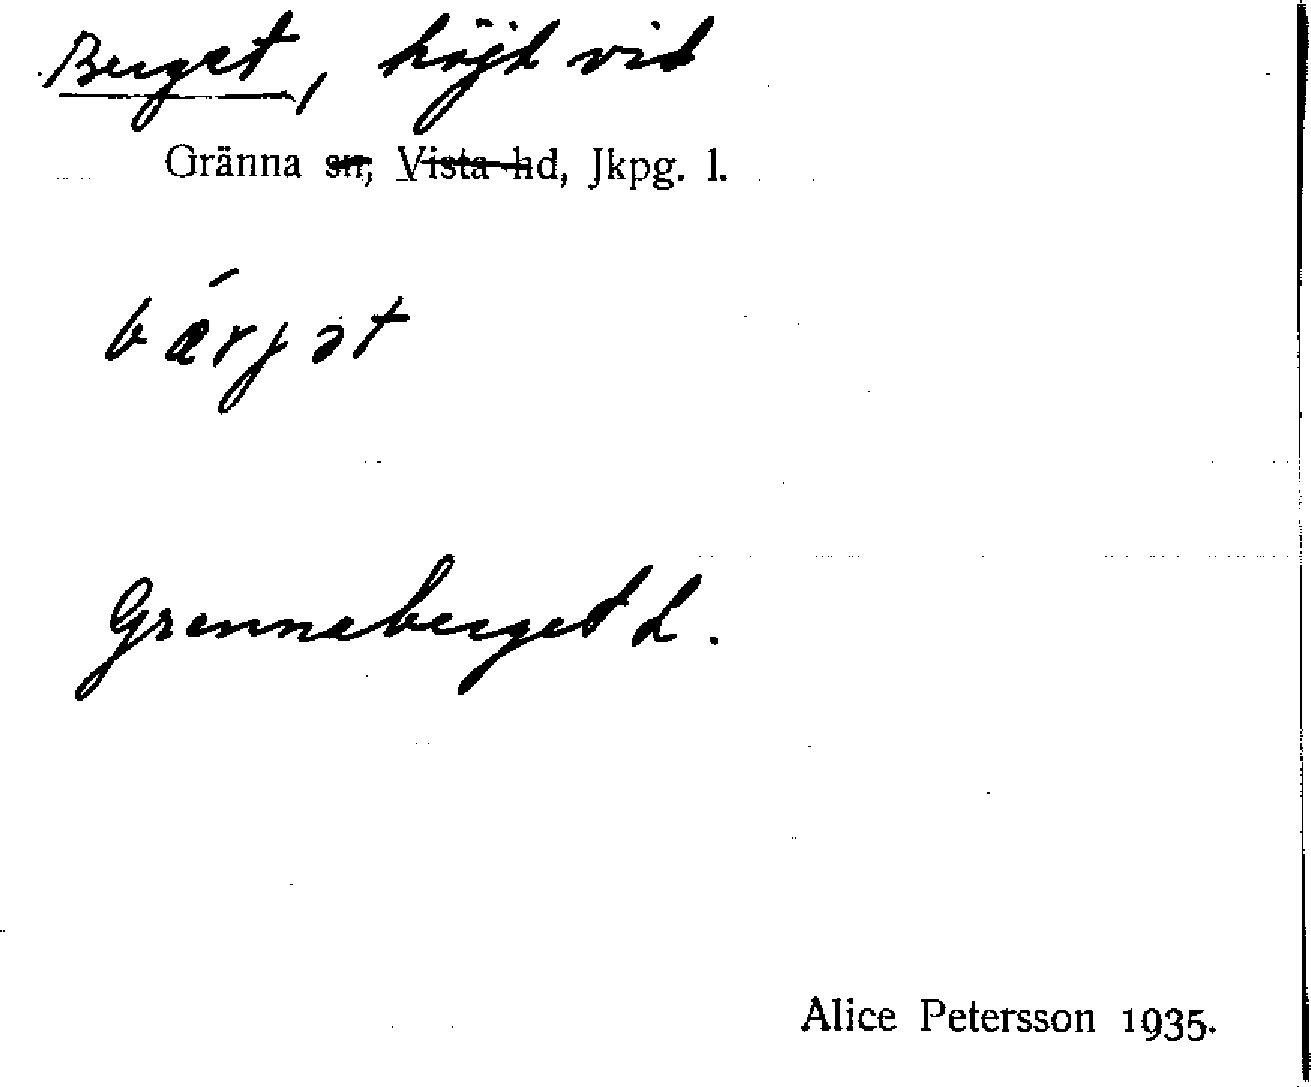 Berget, höjd vid
Gränna sn, Vista hd, Jkpg. l.
bǽrjət
Grennaberget L.
Alice Petersson 1935.